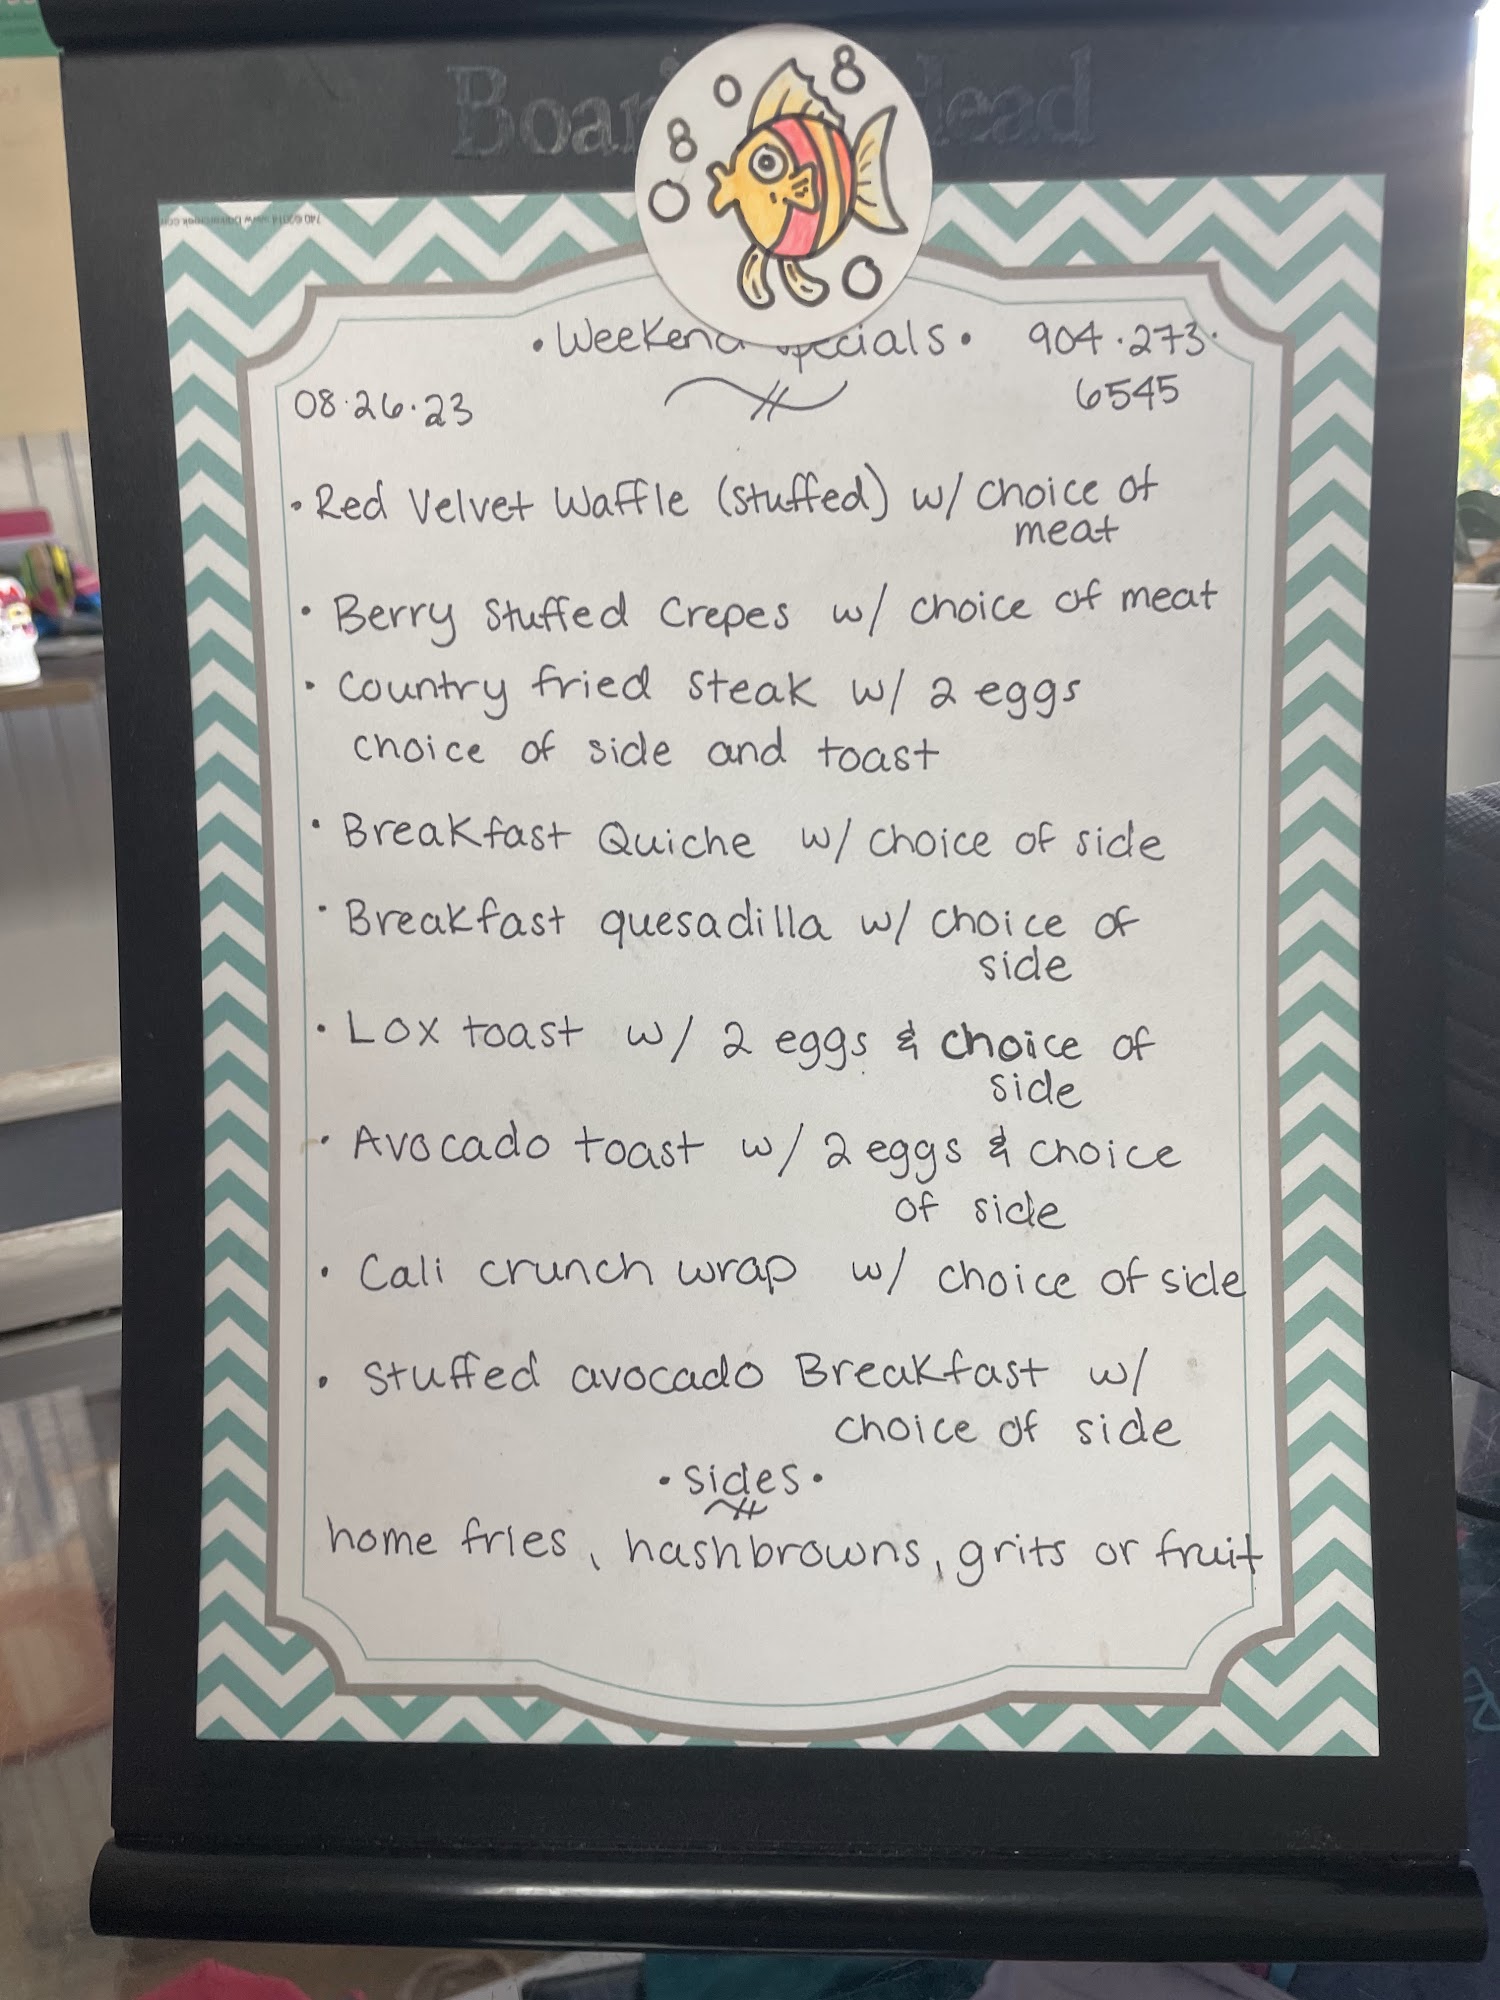 Boar's Head
• Weekend Specials • 904·273·
6545
08·26·23
• Red Velvet Waffle (stuffed) w/ choice of
meat
• Berry Stuffed Crepes w/ choice of meat
• Country fried steak w/ 2 eggs
choice of side and toast
• Breakfast Quiche w/ choice of side
• Breakfast quesadilla w/ choice of
side
• Lox toast w/ 2 eggs & choice of
side
• Avocado toast w/ 2 eggs & choice
of side
• Cali crunch wrap w/ choice of side
• Stuffed avocado Breakfast w/
choice of side
• sides •
home fries, hashbrowns, grits or fruit